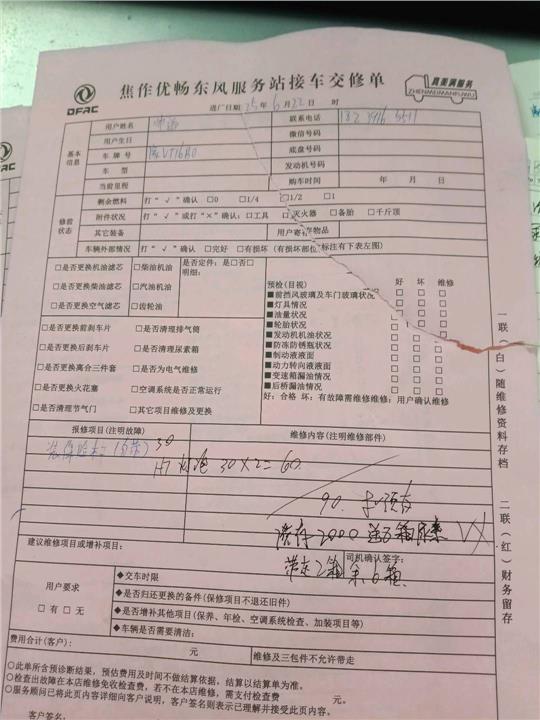 DFAC
焦作优畅东风服务站接车交修单
真美满服务
ZHENMEIMANFUWU
进厂日期:25年6月22日 时
基本信息
用户姓名 联系电话
用户生日 微信号码
车牌号 底盘号码
车型 发动机号码
当前里程 购车时间 年 月 日
修前状态
剩余燃料 打“√”确认 □0 □1/4 □1/2 □1
附件状况 打“√”或打“×”确认:□工具 □灭火器 □备胎 □千斤顶
其它装备 用户寄存物品
车辆外部情况 打“√”确认 □完好 □有损坏(有损坏部位标注有下表左图)
□是否更换机油滤芯 □柴油机油 是否定件:是□否□
□是否更换柴油滤芯 □汽油机油 明细:
□是否更换空气滤芯 □齿轮油
□是否更换前刹车片 □是否清理排气筒
□是否更换后刹车片 □是否清理尿素箱
□是否更换离合三件套 □是否为电气维修
□是否更换火花塞 □空调系统是否正常运行
□是否清理节气门 □其它项目维修及更换
预检(目视) 好 坏 维修
■前挡风玻璃及车门玻璃状况 □ □ □
■灯具情况 □ □ □
■油量状况 □ □ □
■轮胎状况 □ □ □
■发动机机油状况 □ □ □
■防冻防锈瓶状况 □ □ □
■制动液液面 □ □ □
■动力转向液液面 □ □ □
■变速箱漏油情况 □ □ □
■后桥漏油情况 □ □ □
好:合格 坏:有故障需维修维修:用户确认维修
报修项目(注明故障) 维修内容(注明维修部件)
30
H7 灯泡 30×2=60
90. 扣预存
预存2000 送5箱尿素
建议维修项目或增补项目: 司机确认签字:
带走2箱 余6箱
用户要求
□有 □无
◆交车时限
◆是否归还更换的备件(保修项目不退还旧件)
◆是否增补其他项目(保养、年检、空调系统检查、加装项目等)
◆车辆是否需要清洁:
费用合计(客户): 元 维修及三包件不允许带走
○此单所含预诊断结果,预估费用及时间不做结算依据,结算以结算单为准。
○检查出故障在本店维修免收检查费,若不在本店维修,需支付检查费 元。
○服务顾问已将此页内容详细向客户说明,客户签名则表示已理解并接受此页内容。
客户签名:
一联(白)随维修资料存档
二联(红)财务留存